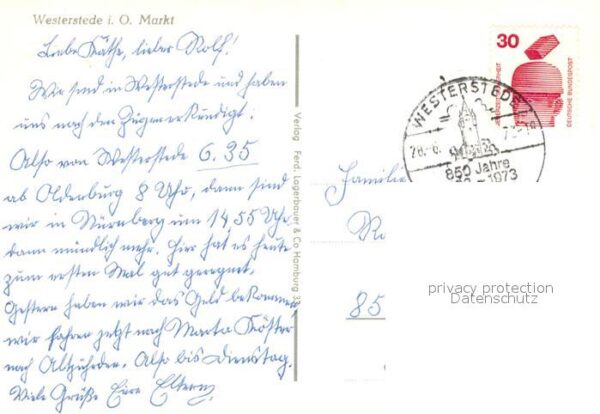 Westerstede i. O. Markt
Liebe Käthe, lieber Rolf!
Wir sind in Westerstede und haben
uns nach den Zügen erkündigt:
Also von Westerstede 6.35
ab Oldenburg 8 Uhr, dann sind
wir in Nürnberg um 14 55 Uhr
dann mündlich mehr. Hier hat es heute
zum ersten Mal gut geregnet,
Gestern haben wir das Geld bekommen
wir fahren jetzt nach Marta
nach. Also bis Dienstag.
Viele Grüße Eure Eltern
Verlag Ferd. Lagerbauer & Co Hamburg 33
30
DEUTSCHE BUNDESPOST
WESTERSTEDE
850 Jahre
- 1973
Familie
85
privacy protection
Datenschutz